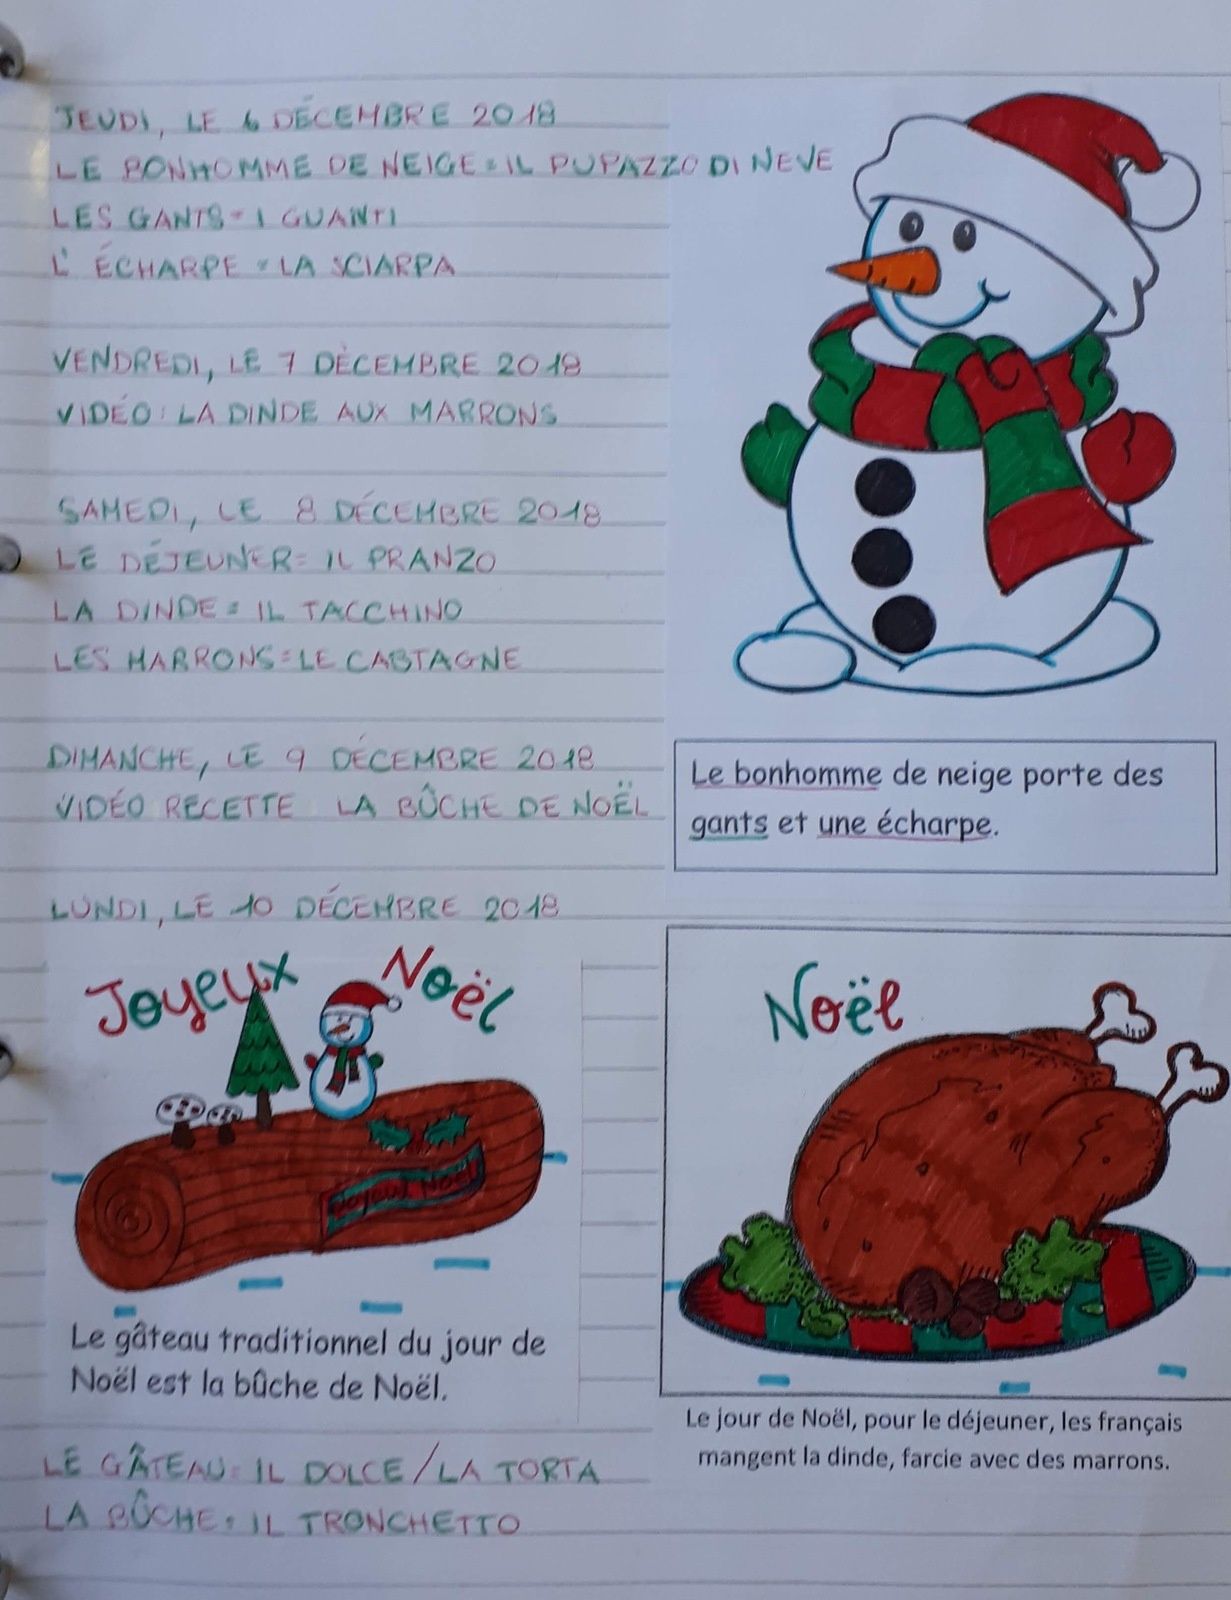 JEUDI, LE 6 DÉCEMBRE 2018
LE BONHOMME DE NEIGE = IL PUPAZZO DI NEVE
LES GANTS = I GUANTI
L'ÉCHARPE = LA SCIARPA
VENDREDI, LE 7 DÈCEMBRE 2018
VIDÉO: LA DINDE AUX MARRONS
SAMEDI, LE 8 DÉCEMBRE 2018
LE DÉJEUNER = IL PRANZO
LA DINDE = IL TACCHINO
LES MARRONS = LE CASTAGNE
DIMANCHE, LE 9 DÉCEMBRE 2018
VIDÉO RECETTE LA BÛCHE DE NOËL
Le bonhomme de neige porte des
gants et une écharpe.
LUNDI, LE 10 DÉCEMBRE 2018
Joyeux Noël
Joyeux Noël
Le gâteau traditionnel du jour de
Noël est la bûche de Noël.
Noël
Le jour de Noël, pour le déjeuner, les français
mangent la dinde, farcie avec des marrons.
LE GÂTEAU = IL DOLCE/LA TORTA
LA BÛCHE = IL TRONCHETTO